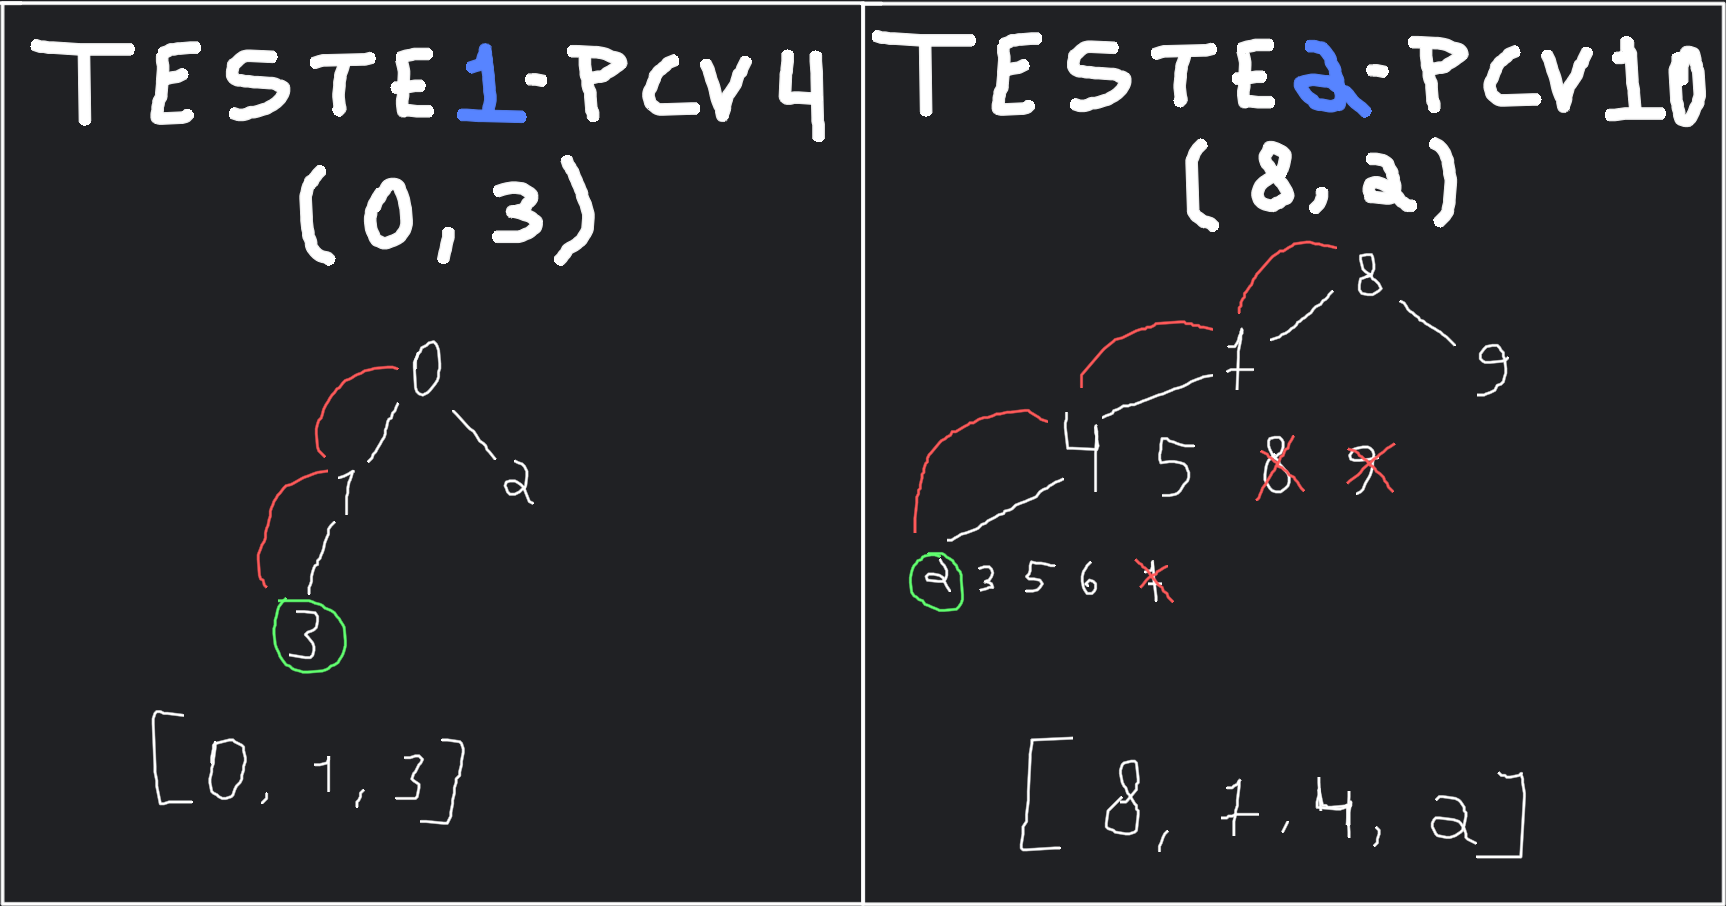 TESTE 1 - PCV 4
(0, 3)
0
1 2
3
[0, 1, 3]
TESTE 2 - PCV 10
(8, 2)
8
7 9
4 5 8 9
2 3 5 6 7
[8, 7, 4, 2]